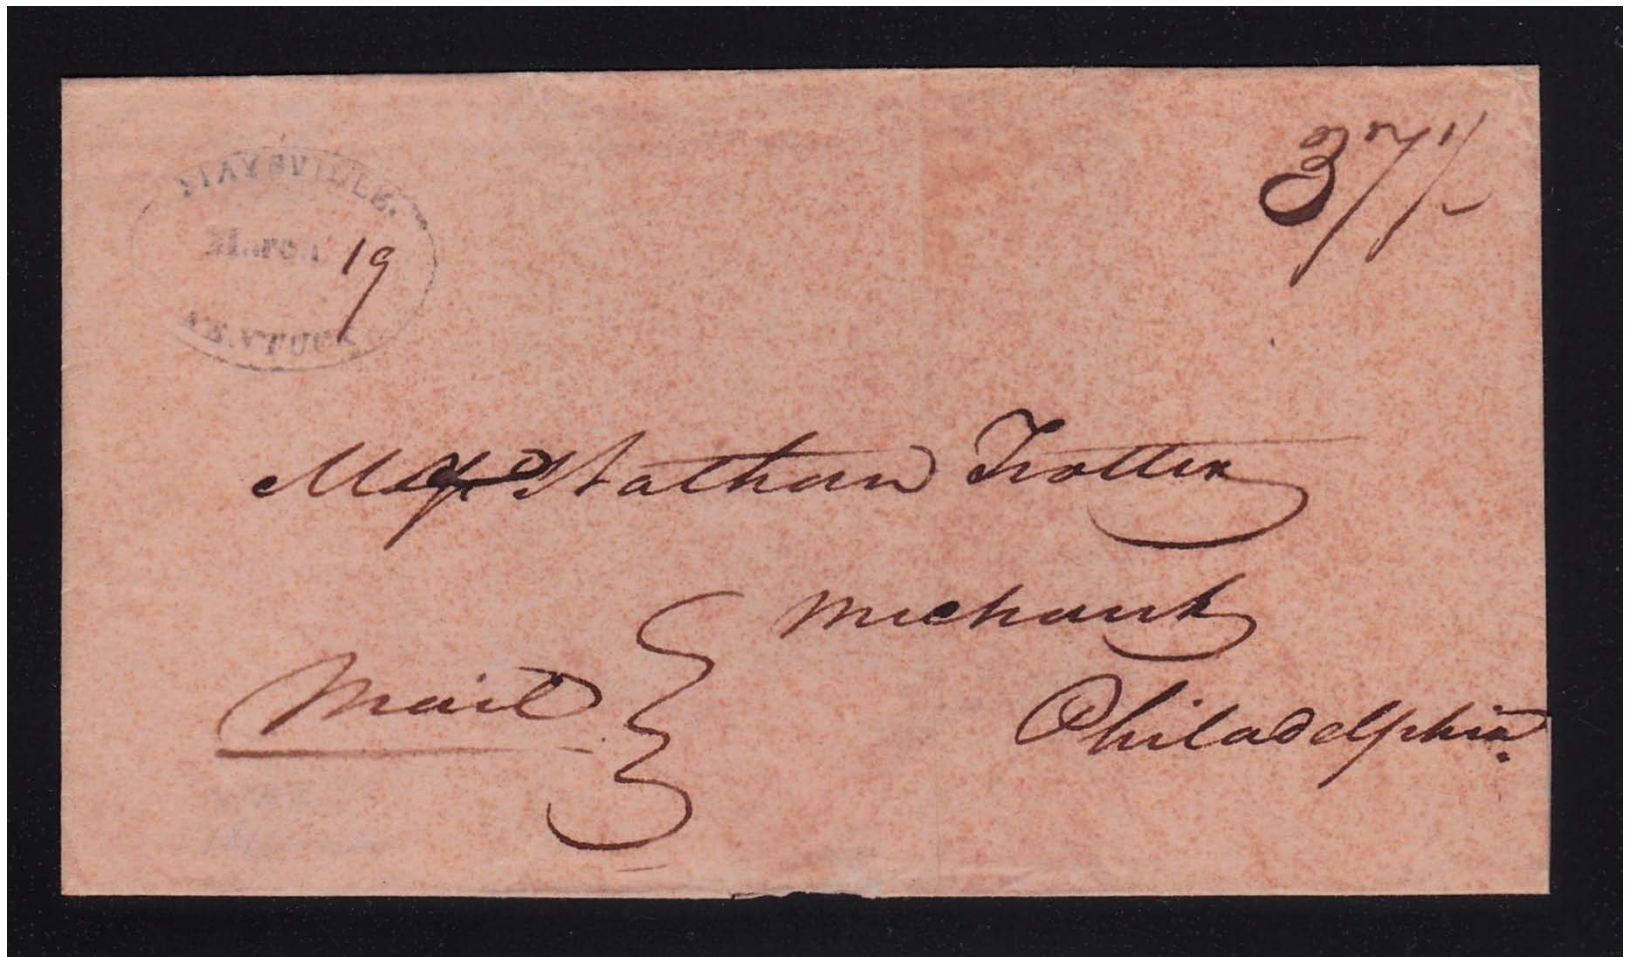 MAYSVILLE.
March 19
KENTUCKY
37 1/2
Nathan Trotter
Merchant
Mail
Philadelphia.